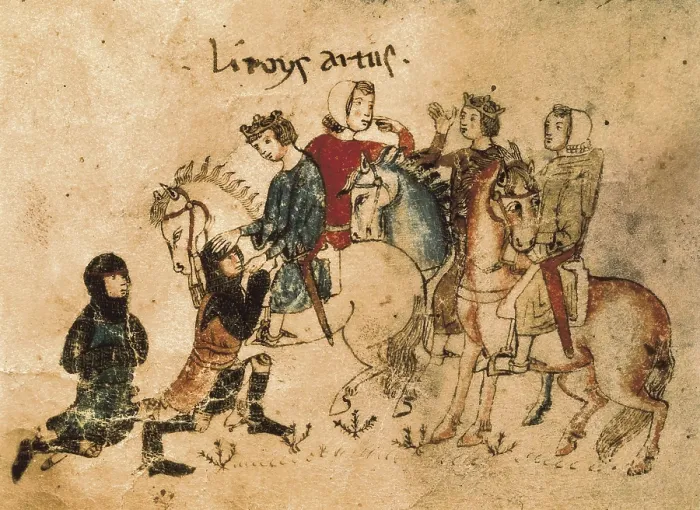 li roys artus.